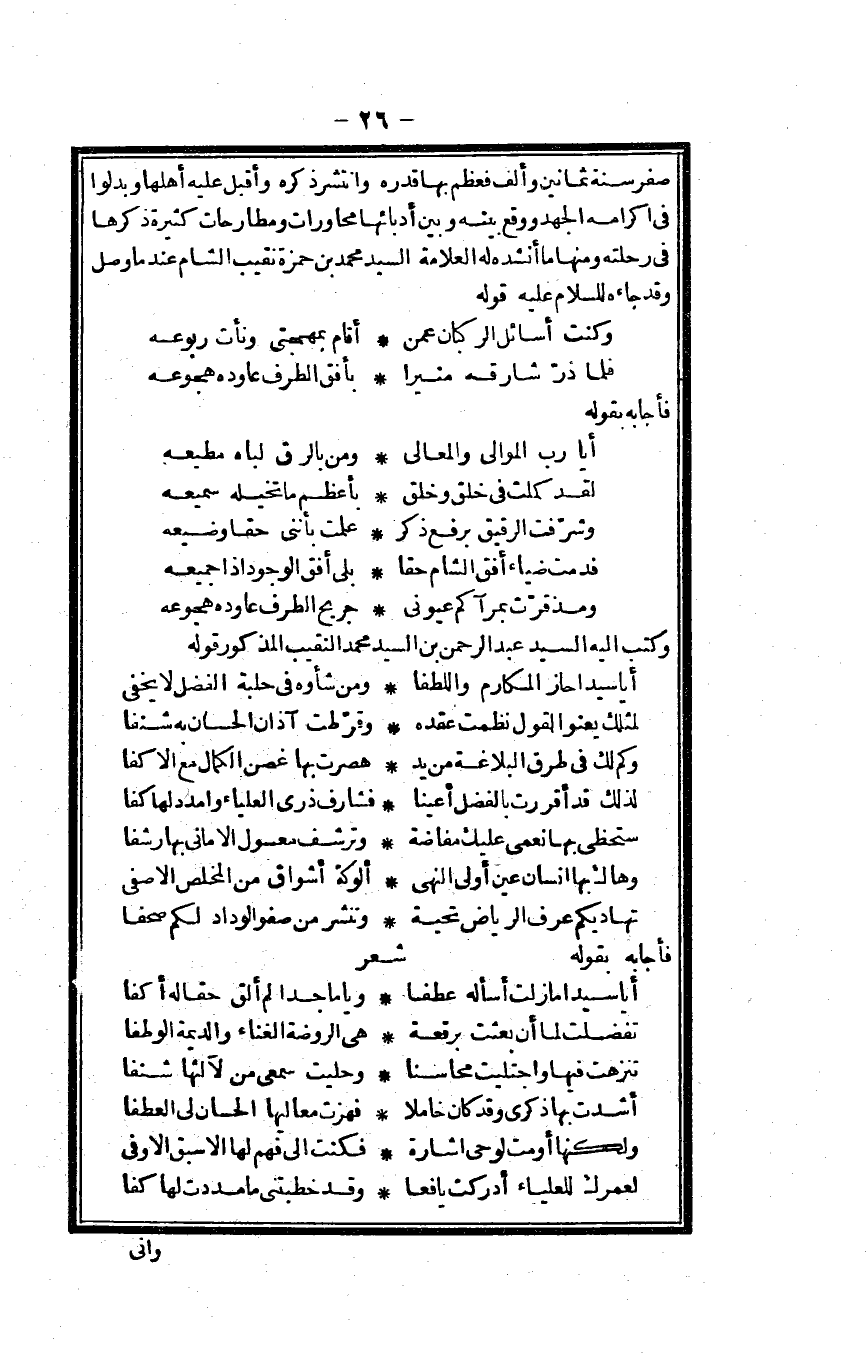 - ٢٦ -
صفر سنة ثمانين وألف فعظم بها قدره وانتشر ذكره وأقبل عليه أهلها وبدلوا
فى اكرامه الجهد ووقع بينه وبين أدبائها محاورات ومطارحات كثيرة ذكرها
فى رحلته ومنها ما أنشده له العلامة السيد محمد بن حمزة نقيب الشام عند ما وصل
وقد جاءه للسلام عليه قوله
وكنت أسائل الركبان عمن * أقام بمهجتى ونأت ربوعه
فلما ذرّ شارقه منيرا * بأفق الطرف عاوده هجوعه
فأجابه بقوله
أيا رب الموالى والمعالى * ومن بالرق لباه مطيعه
لقد كملت فى خلق وخلق * بأعظم ما تخيله سميعه
وشرّفت الرقيق برفع ذكر * علمت بأننى حقا وضيعه
قدمت ضياء أفق الشام حقا * بلى أفق الوجود اذا جميعه
ومذ قرّت بمرآكم عيونى * جريح الطرف عاوده هجوعه
وكتب اليه السيد عبد الرحمن بن السيد محمد النقيب المذكور قوله
أيا سيدا حاز المكارم واللطفا * ومن شأوه فى حلبة الفضل لا يخفى
لمثلك يعنو القول نظمت عقده * وقرّطت آذان الحسان به شنفا
وكم لك فى طرق البلاغة من يد * هصرت بها غصن الكمال مع الاكفا
لذلك قد أقررت بالفضل أعينا * فشارف ذرى العلياء وامدد لها كفا
ستحظى بها نعمى عليك مفاضة * وترشف معسول الامانى بها رشفا
وهاك بها انسان عين أولى النهى * ألوكة أشواق من المخلص الاصفى
تهاديكم عرف الرياض تحية * وتنشر من صفو الوداد لكم صحفا
فأجابه بقوله شعر
أيا سيدا مازلت أسأله عطفا * ويا ماجدا لم ألق حقا له أكفا
تفضلت لما أن بعثت برقعة * هى الروضة الغناء والديمة الوطفا
تنزهت فيها واجتليت محاسنا * وحليت سمعى من لآلئها شنفا
أشدت بها ذكرى وقد كان خاملا * فهزت معاليها الحسان لى العطفا
ولكنها أومت لوحى اشارة * فكنت الى فهم لها الاسبق الاوفى
لعمرك للعلياء أدركت يافعا * وقد خطبتنى ما مددت لها كفا
وانى